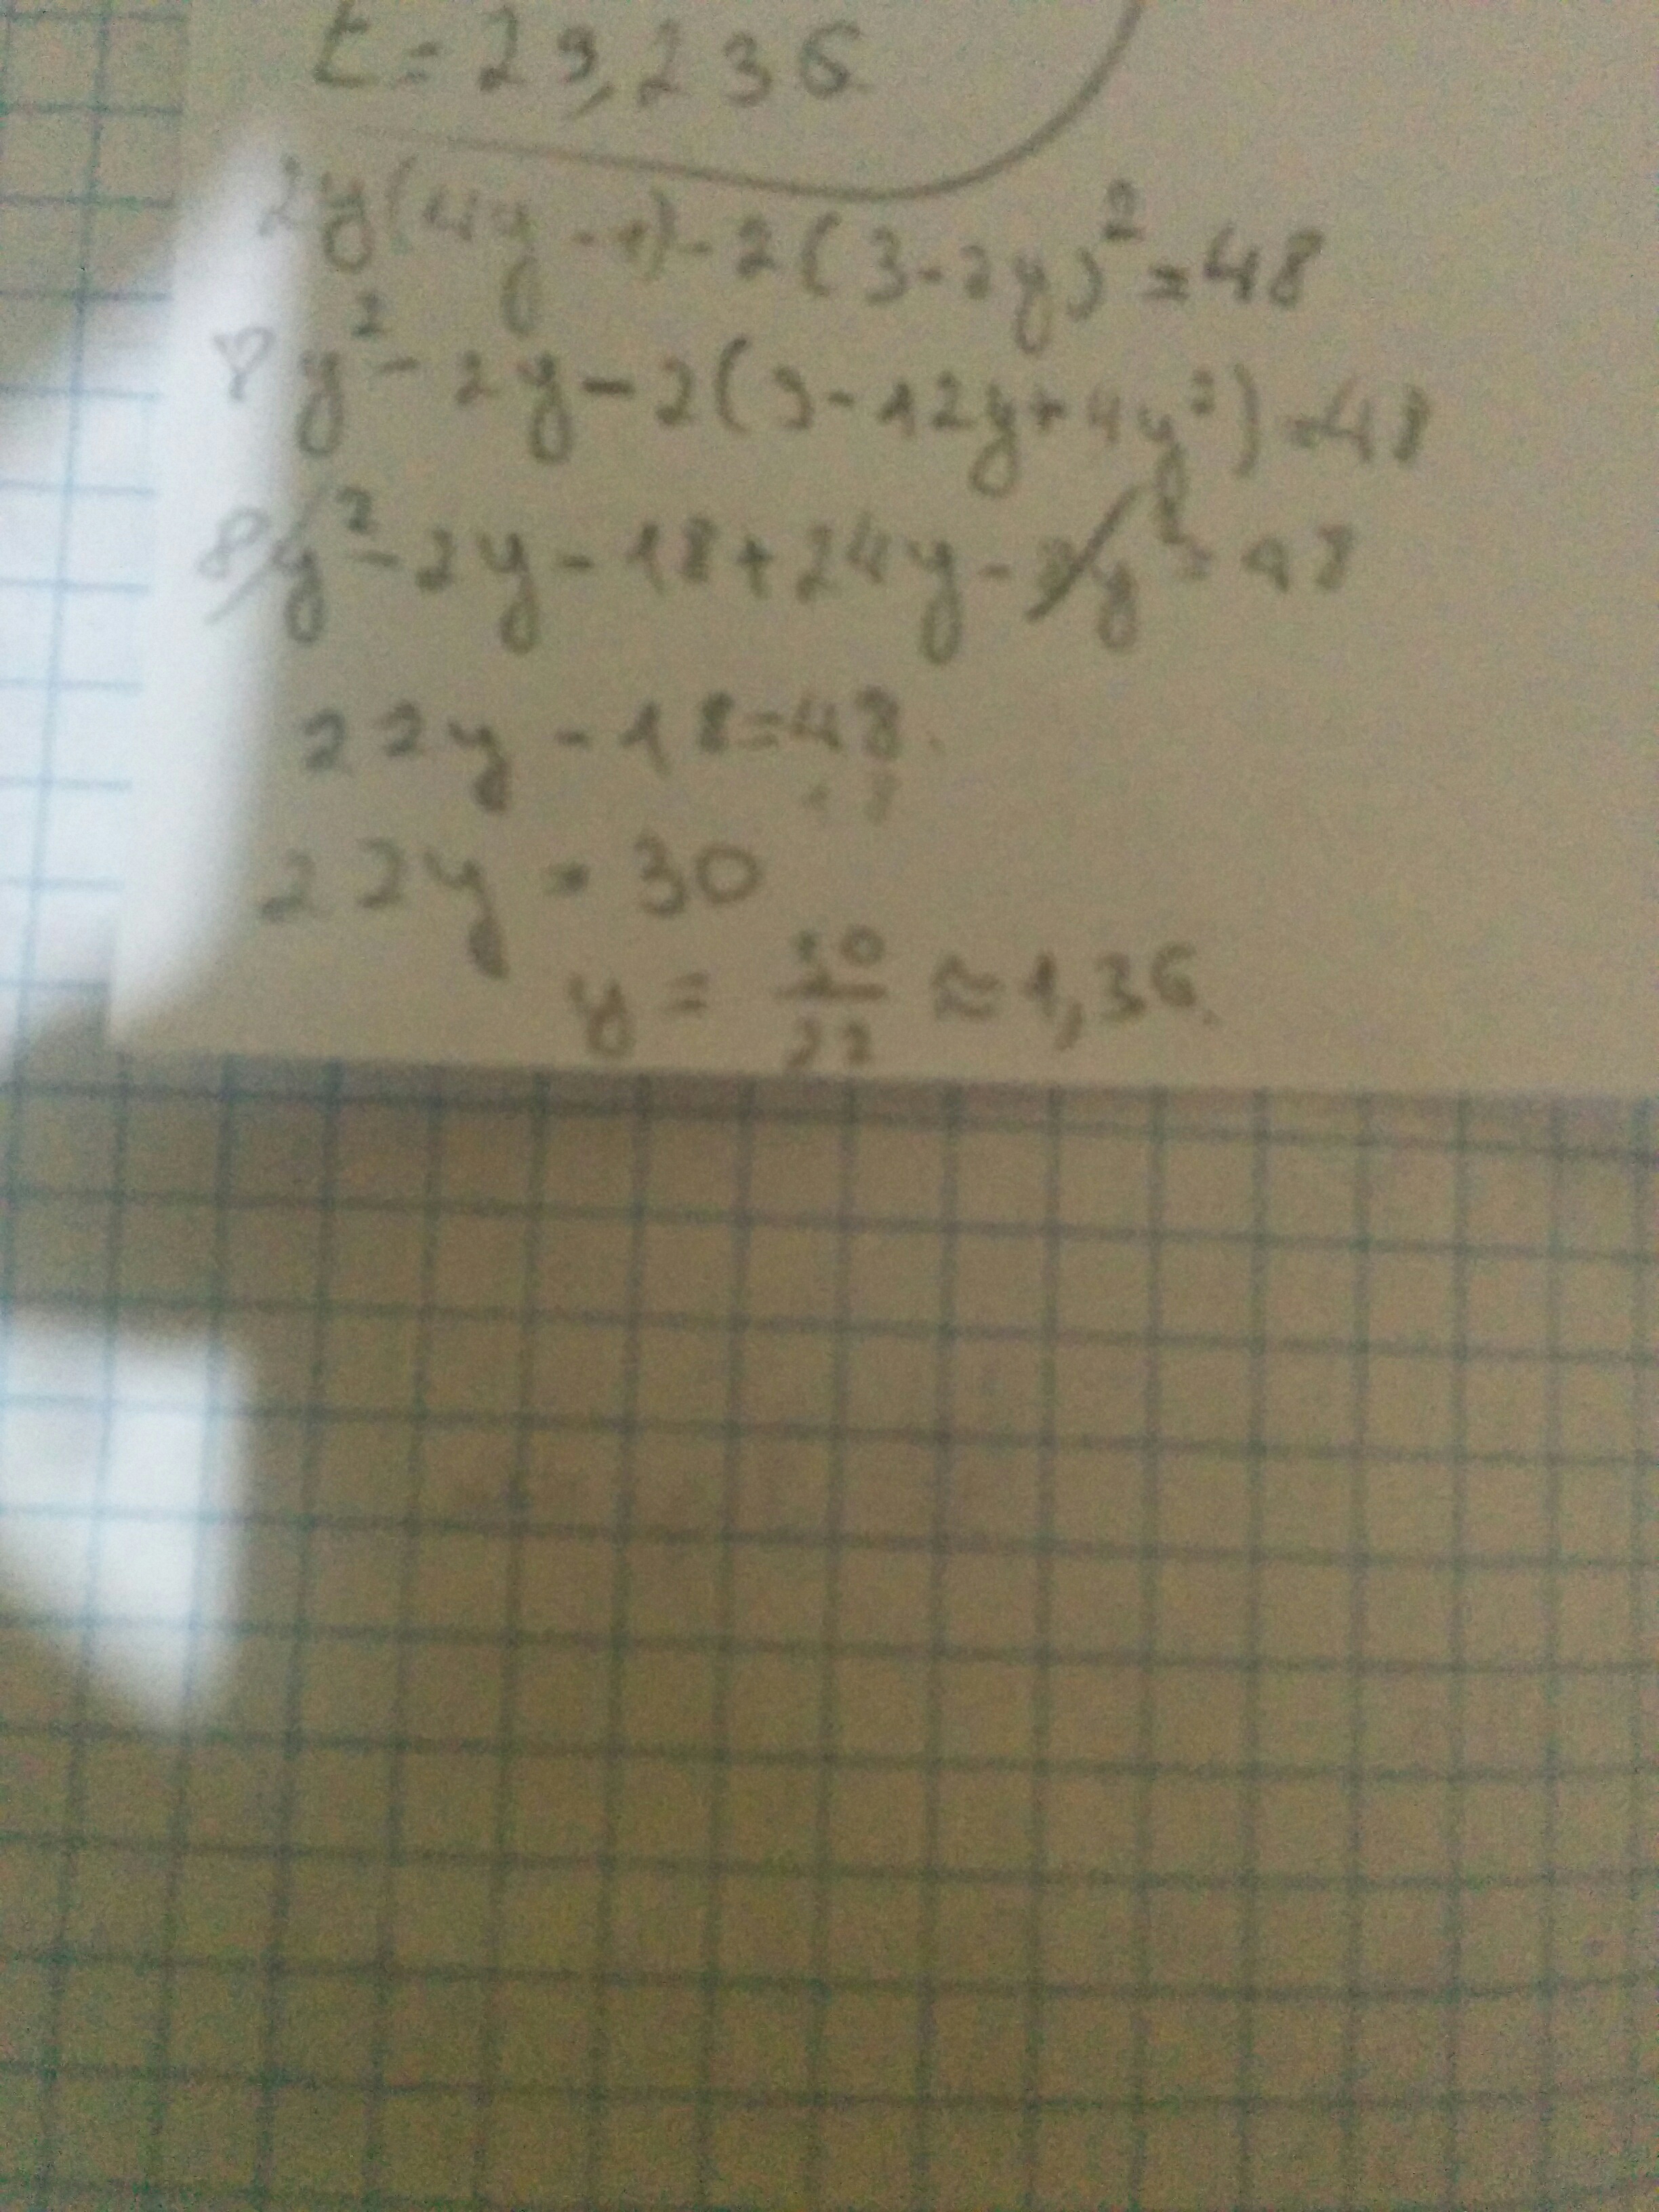 t = 29,236
2y(4y - 1) - 2(3 - 2y)² = 48
8y² - 2y - 2(9 - 12y + 4y²) = 48
8y² - 2y - 18 + 24y - 8y² = 48
22y - 18 = 48.
18
22y = 30
y = 30/22 ≈ 1,36.